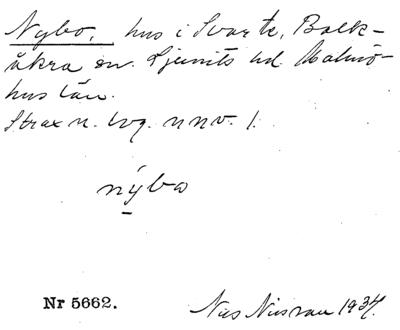 Nybo, hus i Svarte, Balk-
åkra sn. Ljunits hd. Malmö-
hus län.
Strax n. lvg. n nv. 1.
nýbo
Nr 5662. Nils Nilsson 1934.